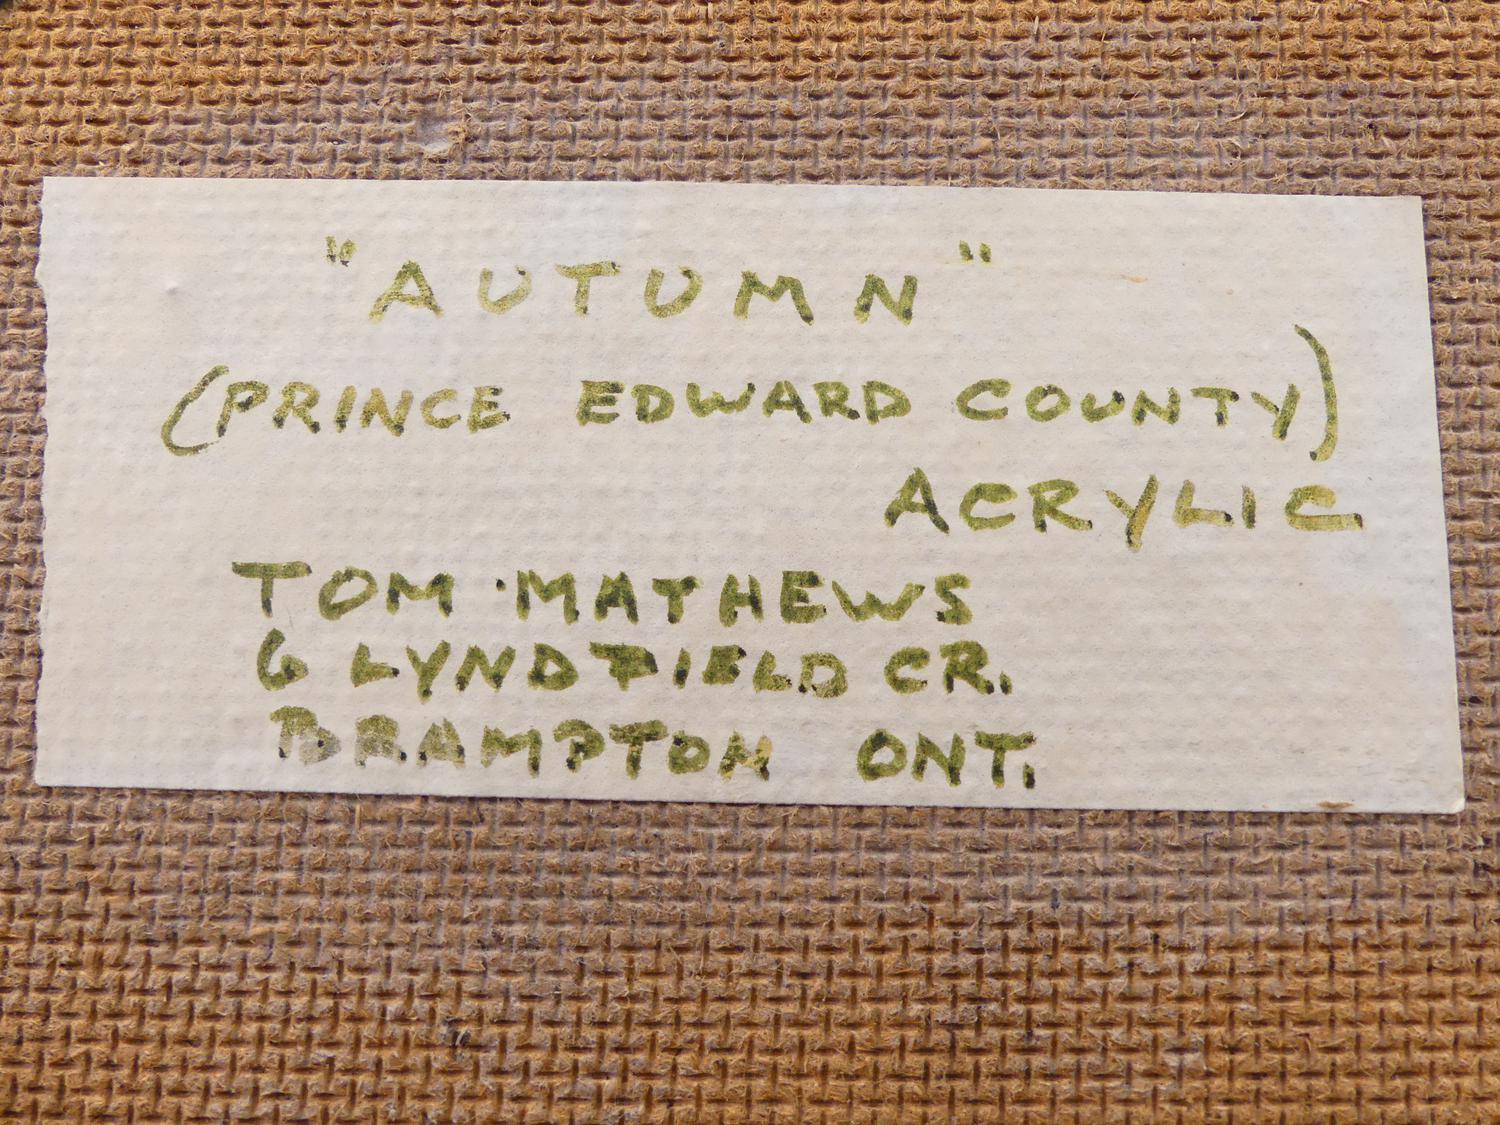 "AUTUMN"
(PRINCE EDWARD COUNTY)
ACRYLIC
TOM MATHEWS
6 LYNDFIELD CR.
BRAMPTON ONT.